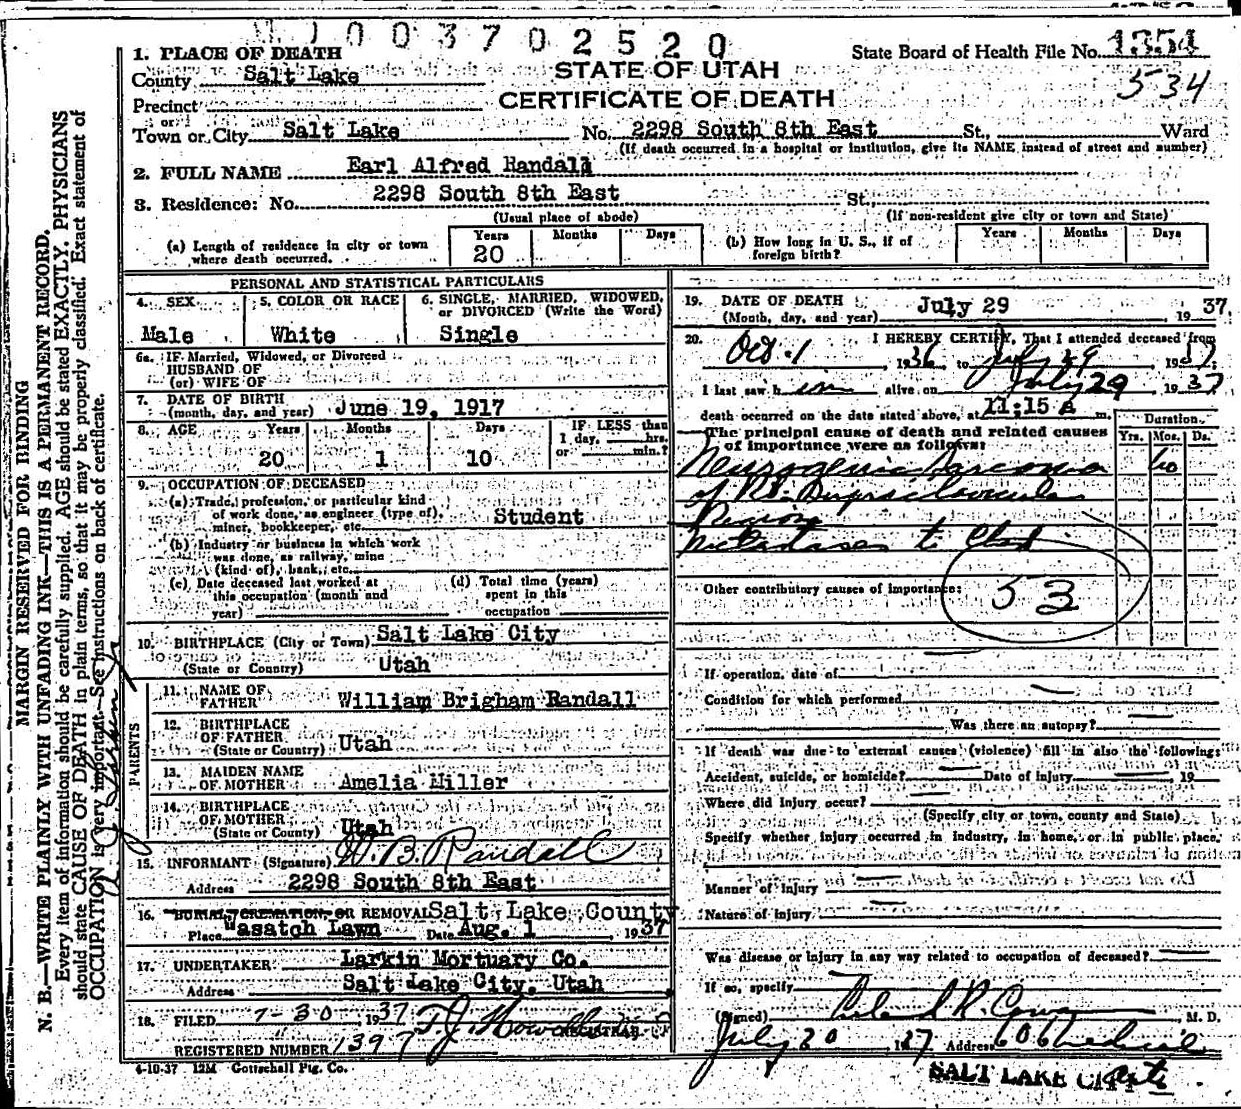 1003702520
1. PLACE OF DEATH
State Board of Health File No. 1354
County Salt Lake
STATE OF UTAH
534
Precinct
CERTIFICATE OF DEATH
or
Town or City Salt Lake No. 2298 South 8th East St., Ward
(If death occurred in a hospital or institution, give its NAME instead of street and number)
2. FULL NAME Earl Alfred Randall
3. Residence: No. 2298 South 8th East St.,
(Usual place of abode) (If non-resident give city or town and State)
(a) Length of residence in city or town where death occurred. Years 20 Months Days
(b) How long in U. S., if of foreign birth? Years Months Days
PERSONAL AND STATISTICAL PARTICULARS
4. SEX Male
5. COLOR OR RACE White
6. SINGLE, MARRIED, WIDOWED, or DIVORCED (Write the Word) Single
6a. IF Married, Widowed, or Divorced
HUSBAND OF
(or) WIFE OF
7. DATE OF BIRTH
(month, day, and year) June 19, 1917
8. AGE Years Months Days IF LESS than
1 day, hrs.
or min.?
20 1 10
9. OCCUPATION OF DECEASED
(a) Trade, profession, or particular kind
of work done, as engineer (type of),
miner, bookkeeper, etc. Student
(b) Industry or business in which work
was done, as railway, mine
(kind of), bank, etc.
(c) Date deceased last worked at
this occupation (month and
year)
(d) Total time (years)
spent in this
occupation
10. BIRTHPLACE (City or Town) Salt Lake City
(State or Country) Utah
PARENTS
11. NAME OF
FATHER William Brigham Randall
12. BIRTHPLACE
OF FATHER
(State or Country) Utah
13. MAIDEN NAME
OF MOTHER Amelia Miller
14. BIRTHPLACE
OF MOTHER
(State or Country) Utah
15. INFORMANT (Signature) W. B. Randall
Address 2298 South 8th East
16. BURIAL, CREMATION, OR REMOVAL Salt Lake County
Place Wasatch Lawn Date Aug. 1, 1937
17. UNDERTAKER Larkin Mortuary Co.
Address Salt Lake City, Utah
18. FILED 7-30 1937 T. J. Howells
REGISTRAR
REGISTERED NUMBER 1397
4-10-37 12M Gottschall Ptg. Co.
19. DATE OF DEATH
(Month, day, and year) July 29 1937.
20. I HEREBY CERTIFY, That I attended deceased from
Oct. 1, 1936, to July 29, 1937;
I last saw him alive on July 29, 1937
death occurred on the date stated above, at 11:15 A m.
The principal cause of death and related causes
of importance were as follows:
Duration
Yrs. Mos. Ds.
Neurogenic Sarcoma 10
of Rt. Supraclavicular
Region
Metastases to Chest
Other contributory causes of importance:
53
If operation, date of
Condition for which performed
Was there an autopsy?
If death was due to external causes (violence) fill in also the following:
Accident, suicide, or homicide? Date of injury 19
Where did injury occur?
(Specify city or town, county and State)
Specify whether injury occurred in industry, in home, or in public place.
Manner of injury
Nature of injury
Was disease or injury in any way related to occupation of deceased?
If so, specify
(Signed) Leland R. Cowan, M. D.
July 20, 1937 Address 606 Medical
SALT LAKE CITY Arts
MARGIN RESERVED FOR BINDING
N. B.—WRITE PLAINLY WITH UNFADING INK—THIS IS A PERMANENT RECORD.
Every item of information should be carefully supplied. AGE should be stated EXACTLY. PHYSICIANS
should state CAUSE OF DEATH in plain terms, so that it may be properly classified. Exact statement of
OCCUPATION is very important. See instructions on back of certificate.